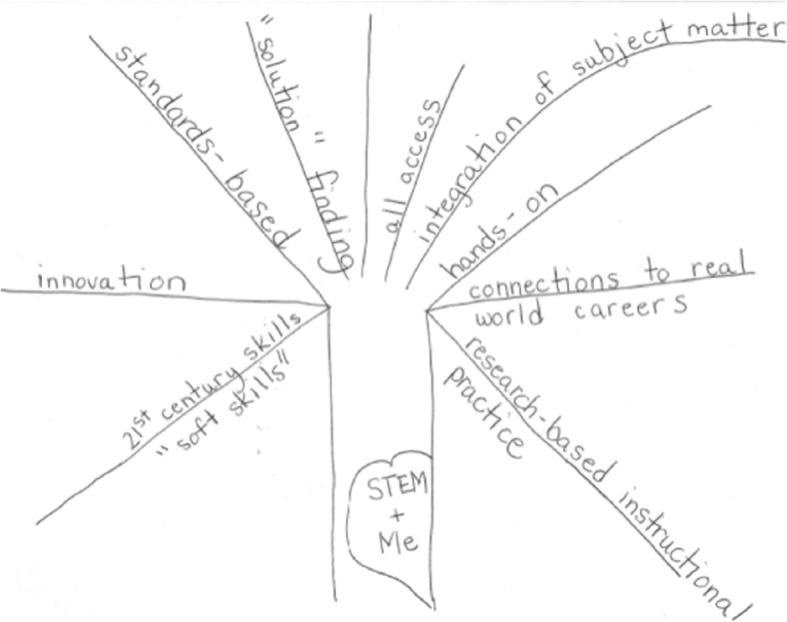 innovation
standards-based
"solution" finding
all access
integration of subject matter
hands-on
connections to real
world careers
research-based instructional
practice
21st century skills
"soft skills"
STEM
+
Me